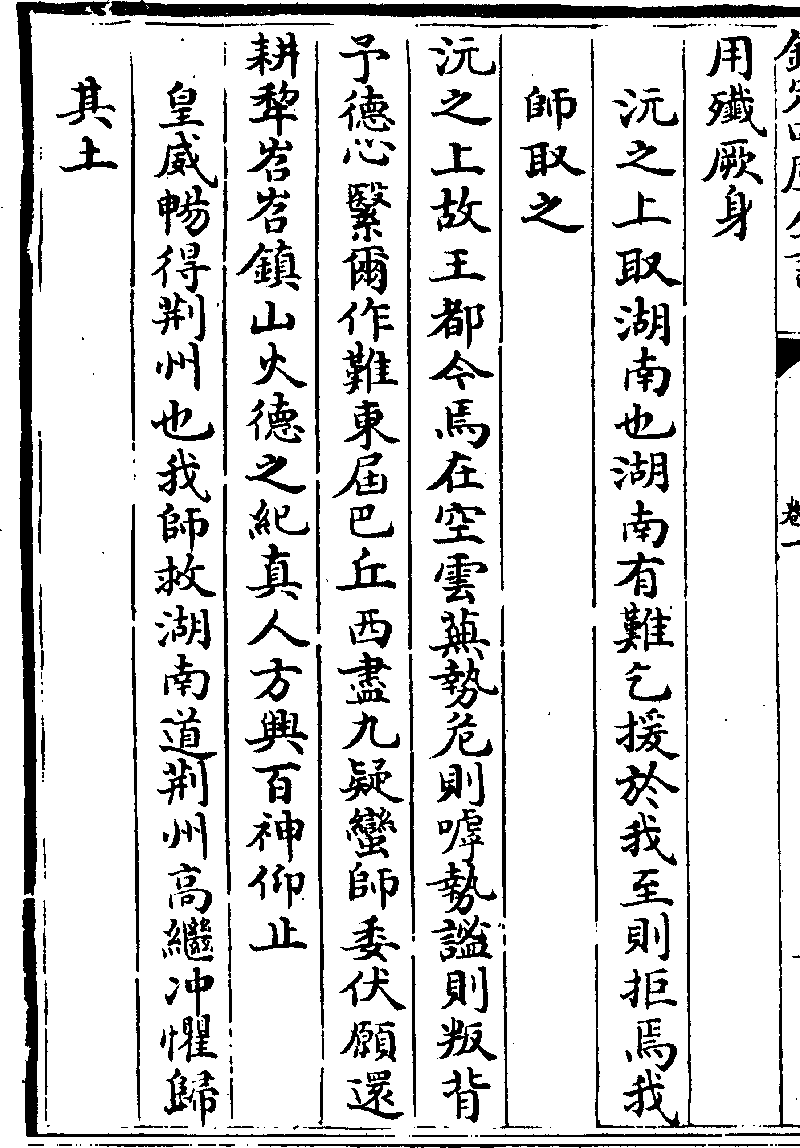 用殲厥身
沅之上取湖南也湖南有難乞援於我至則拒焉我
師取之
沅之上故王都今焉在空雲蕪勢危則嘑勢謐則叛背
予德心緊爾作難東屆巴丘西盡九疑蠻師委伏願還
耕犂岩岩鎮山火德之紀真人方興百神仰止
皇威暢得荆州也我師救湖南道荆州高繼冲懼歸
其土
卷一